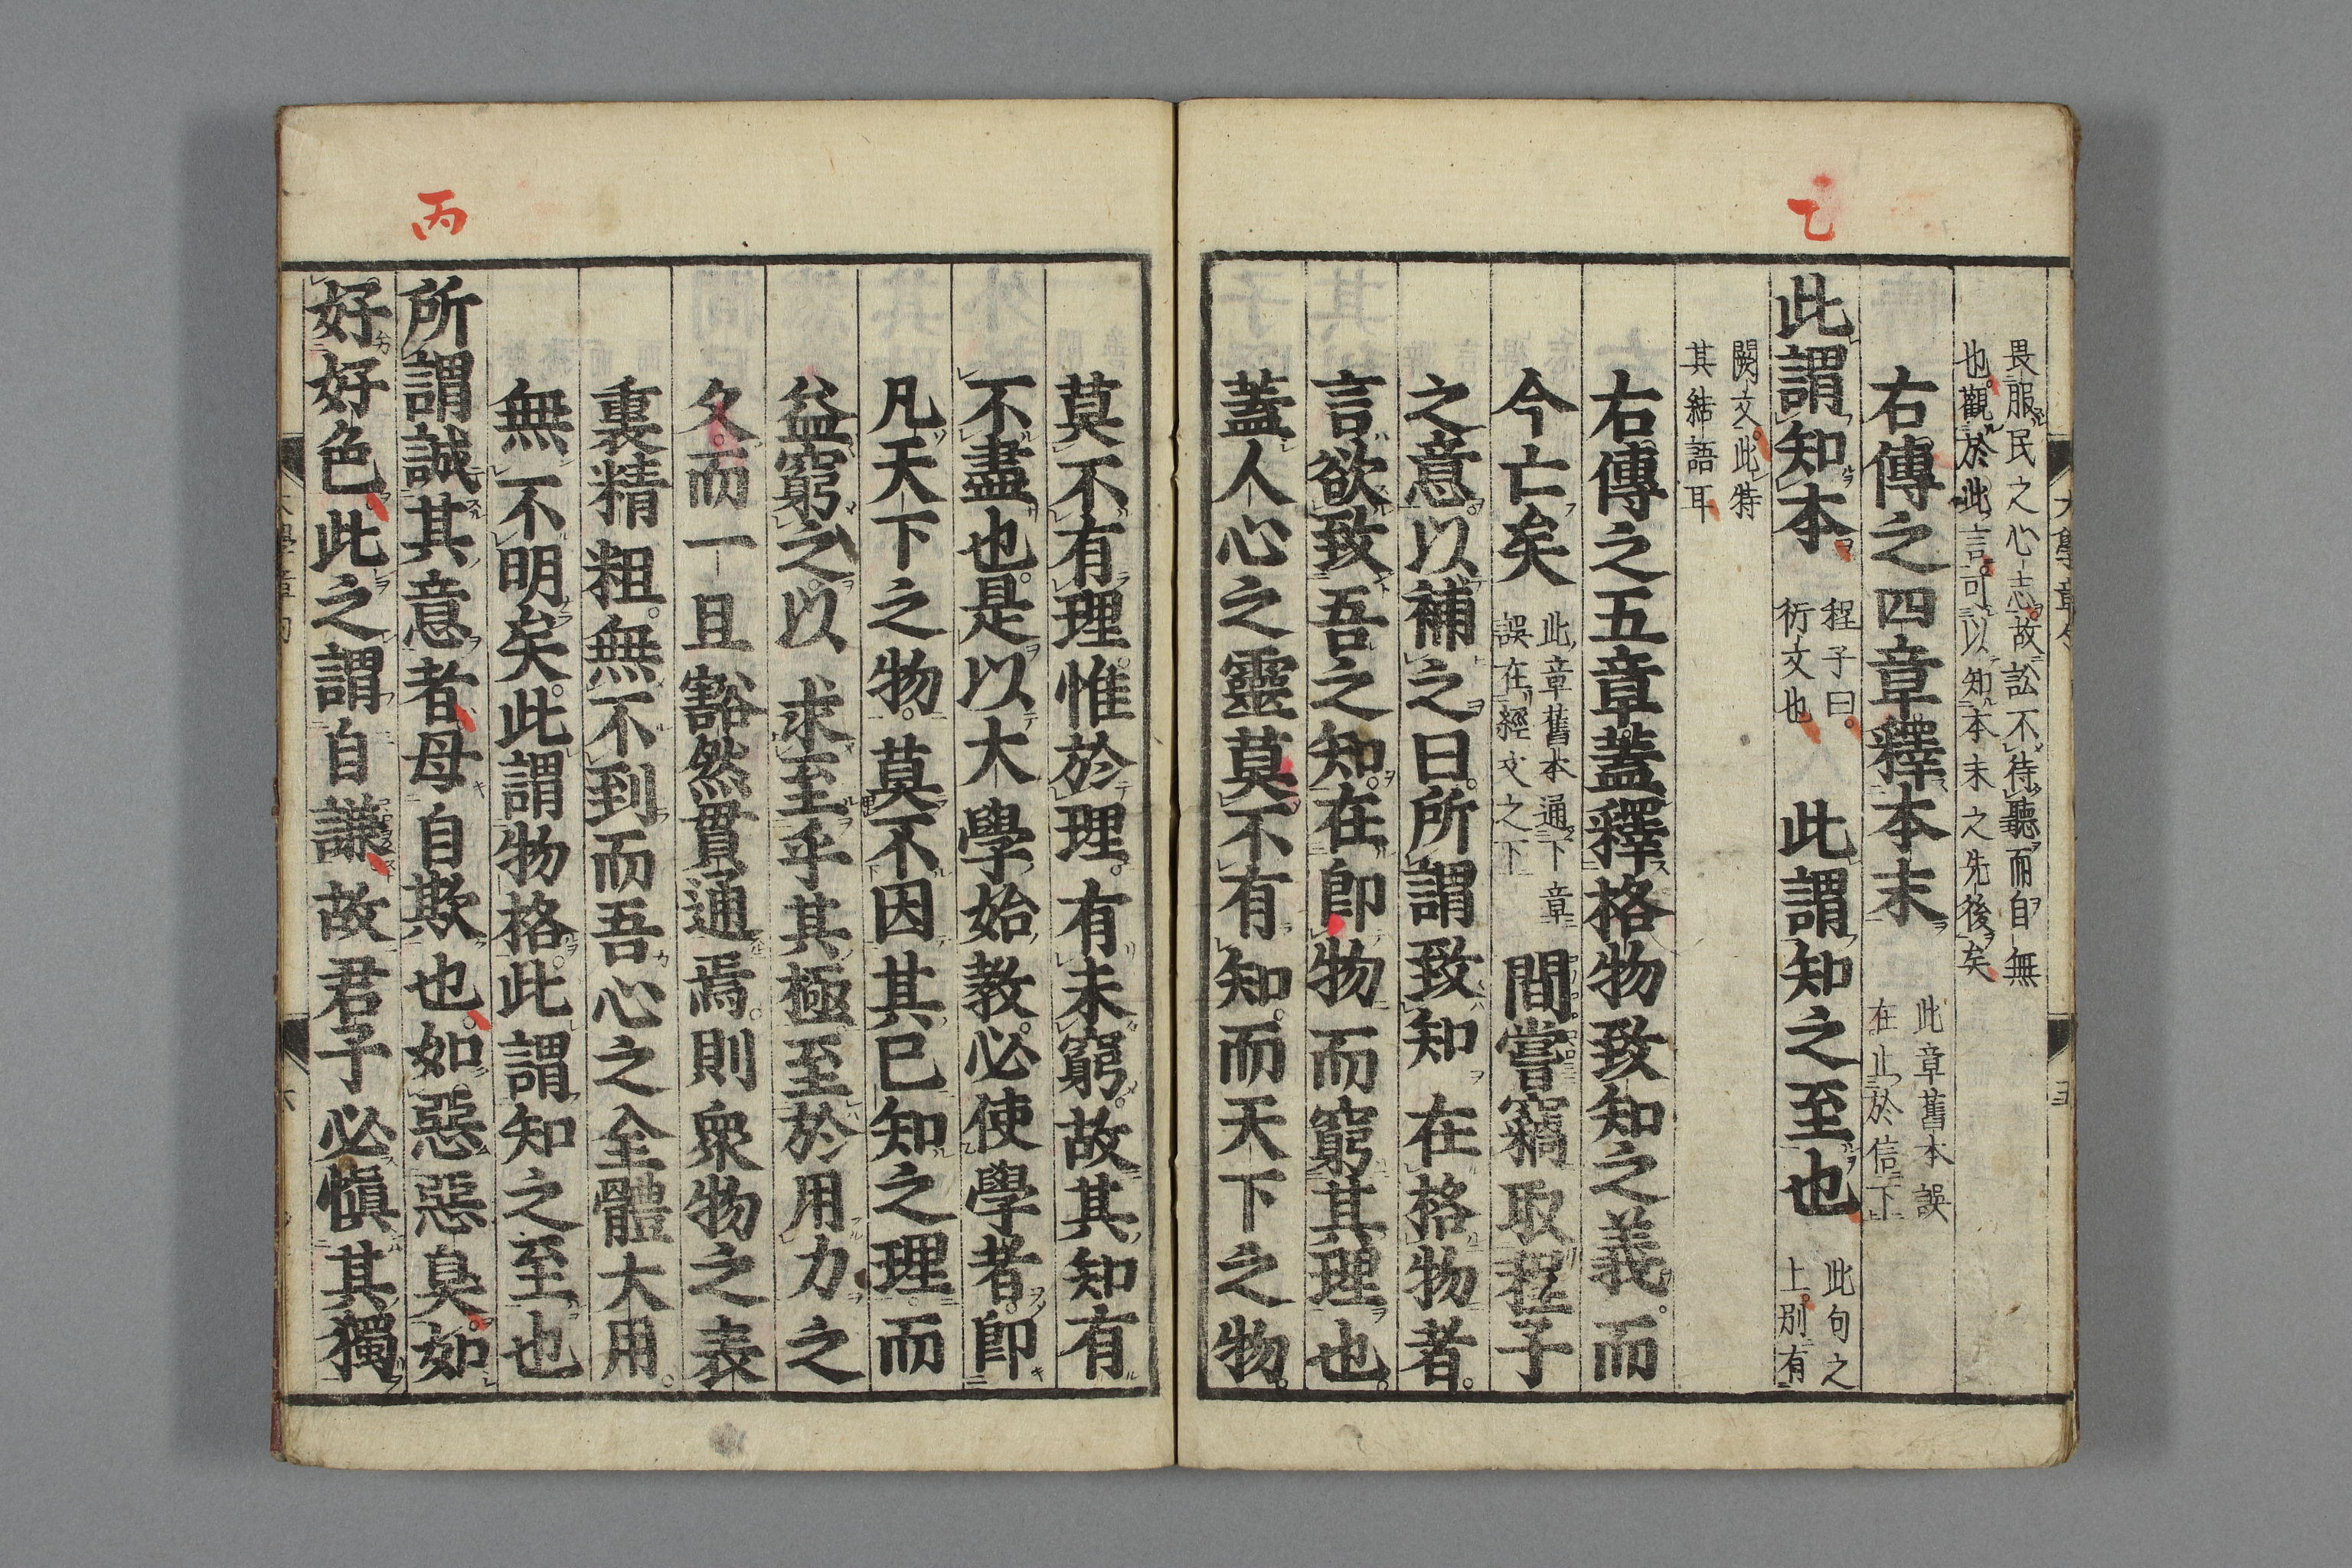 乙
畏服民之心志。故訟不待聽而自無
也。觀於此言。可以知本末之先後矣
右傳之四章釋本末
此章舊本誤
在止於信下
此謂知本
程子曰。
衍文也
此謂知之至也
此句之
上。別有
闕文。此特
其結語耳
右傳之五章蓋釋格物致知之義。而
今亡矣
此章舊本通下章
誤在經文之下
間嘗竊取程子
之意。以補之曰。所謂致知在格物者。
言欲致吾之知。在即物而窮其理也。
蓋人心之靈莫不有知。而天下之物。
莫不有理惟於理。有未窮。故其知有
不盡也。是以大學始教。必使學者。即
凡天下之物。莫不因其已知之理。而
益窮之。以求至乎其極至於用力之
久。而一旦豁然貫通焉。則衆物之表
裏精粗。無不到而吾心之全體大用。
無不明矣。此謂物格。此謂知之至也
丙
所謂誠其意者母自欺也。如惡惡臭。如
好好色。此之謂自謙故君子必愼其獨